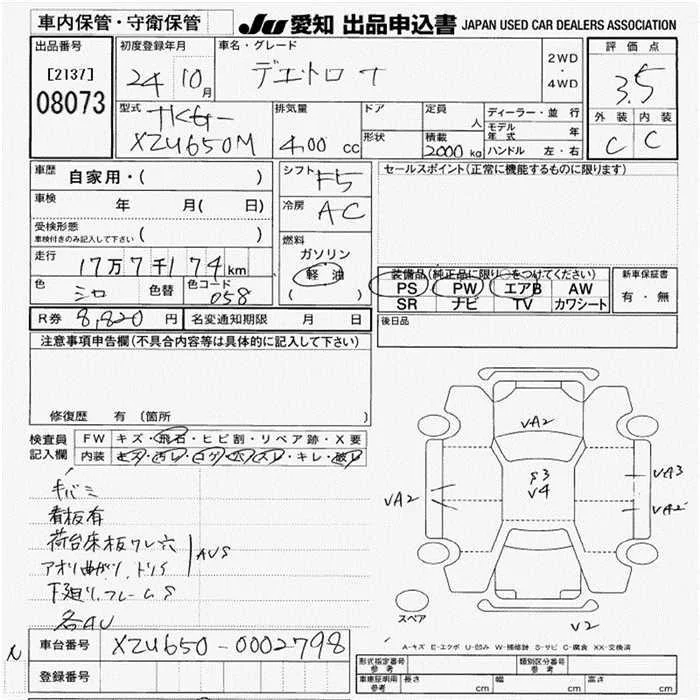 車内保管・守衛保管
JU 愛知 出品申込書 JAPAN USED CAR DEALERS ASSOCIATION
出品番号
[2137]
08073
初度登録年月
24 10月
車名・グレード
2WD
・
4WD
評価点
3.5
外装 内装
C C
型式
TKG-
XZU650M
排気量
4.00 cc
ドア
形状
定員
人
積載
2000 kg
ディーラー・並行
モデル年式 年
ハンドル 左・右
車歴
自家用・( )
車検
年 月( 日)
受検形態
車検付きのみ記入して下さい ( )
走行
17万7千174km
色
シロ
色替
色コード
058
シフト
F5
冷房
AC
燃料
ガソリン
軽油
( )
セールスポイント(正常に機能するものに限ります)
装備品(純正品に限り○をつけてください)
PS PW エアB AW
SR ナビ TV カワシート
新車保証書
有・無
後日品
R券 8,820 円
名変通知期限 月 日
注意事項申告欄(不具合内容等は具体的に記入して下さい)
修復歴 有(箇所
検査員
記入欄
FW キズ・飛石・ヒビ割・リペア跡・X要
内装 キズ・汚レ・コゲ・穴・スレ・キレ・破レ
キバミ
看板有
荷台床板ワレ穴
アオリ曲がり、トリS
AUS
下廻り、フレームS
各AU
VA2
S3
V4
VA2
VA3
VA2
V2
スペア
A-キズ E-エクボ U-凹み W-補修跡 S-サビ C-腐食 XX-交換済
車台番号
XZU650-0002798
登録番号
形式指定番号
参考
類別区分番号
参考
車庫証明用
参考
長さ cm
幅 cm
高さ cm